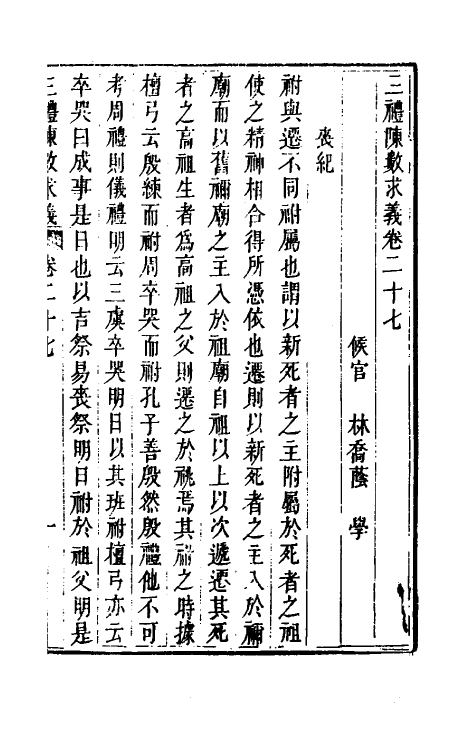 三禮陳數求義卷二十七
候官　林喬蔭　學
喪紀
祔與遷不同祔屬也謂以新死者之主附屬於死者之祖
使之精神相合得所憑依也遷則以新死者之主入於禰
廟而以舊禰廟之主入於祖廟自祖以上以次遞遷其死
者之高祖生者爲高祖之父則遷之於祧焉其祔之時據
檀弓云殷練而祔周卒哭而祔孔子善殷然殷禮他不可
考周禮則儀禮明云三虞卒哭明日以其班祔檀弓亦云
卒哭曰成事是日也以吉祭易喪祭明日祔於祖父明是
三禮陳數求義　卷二十七　一